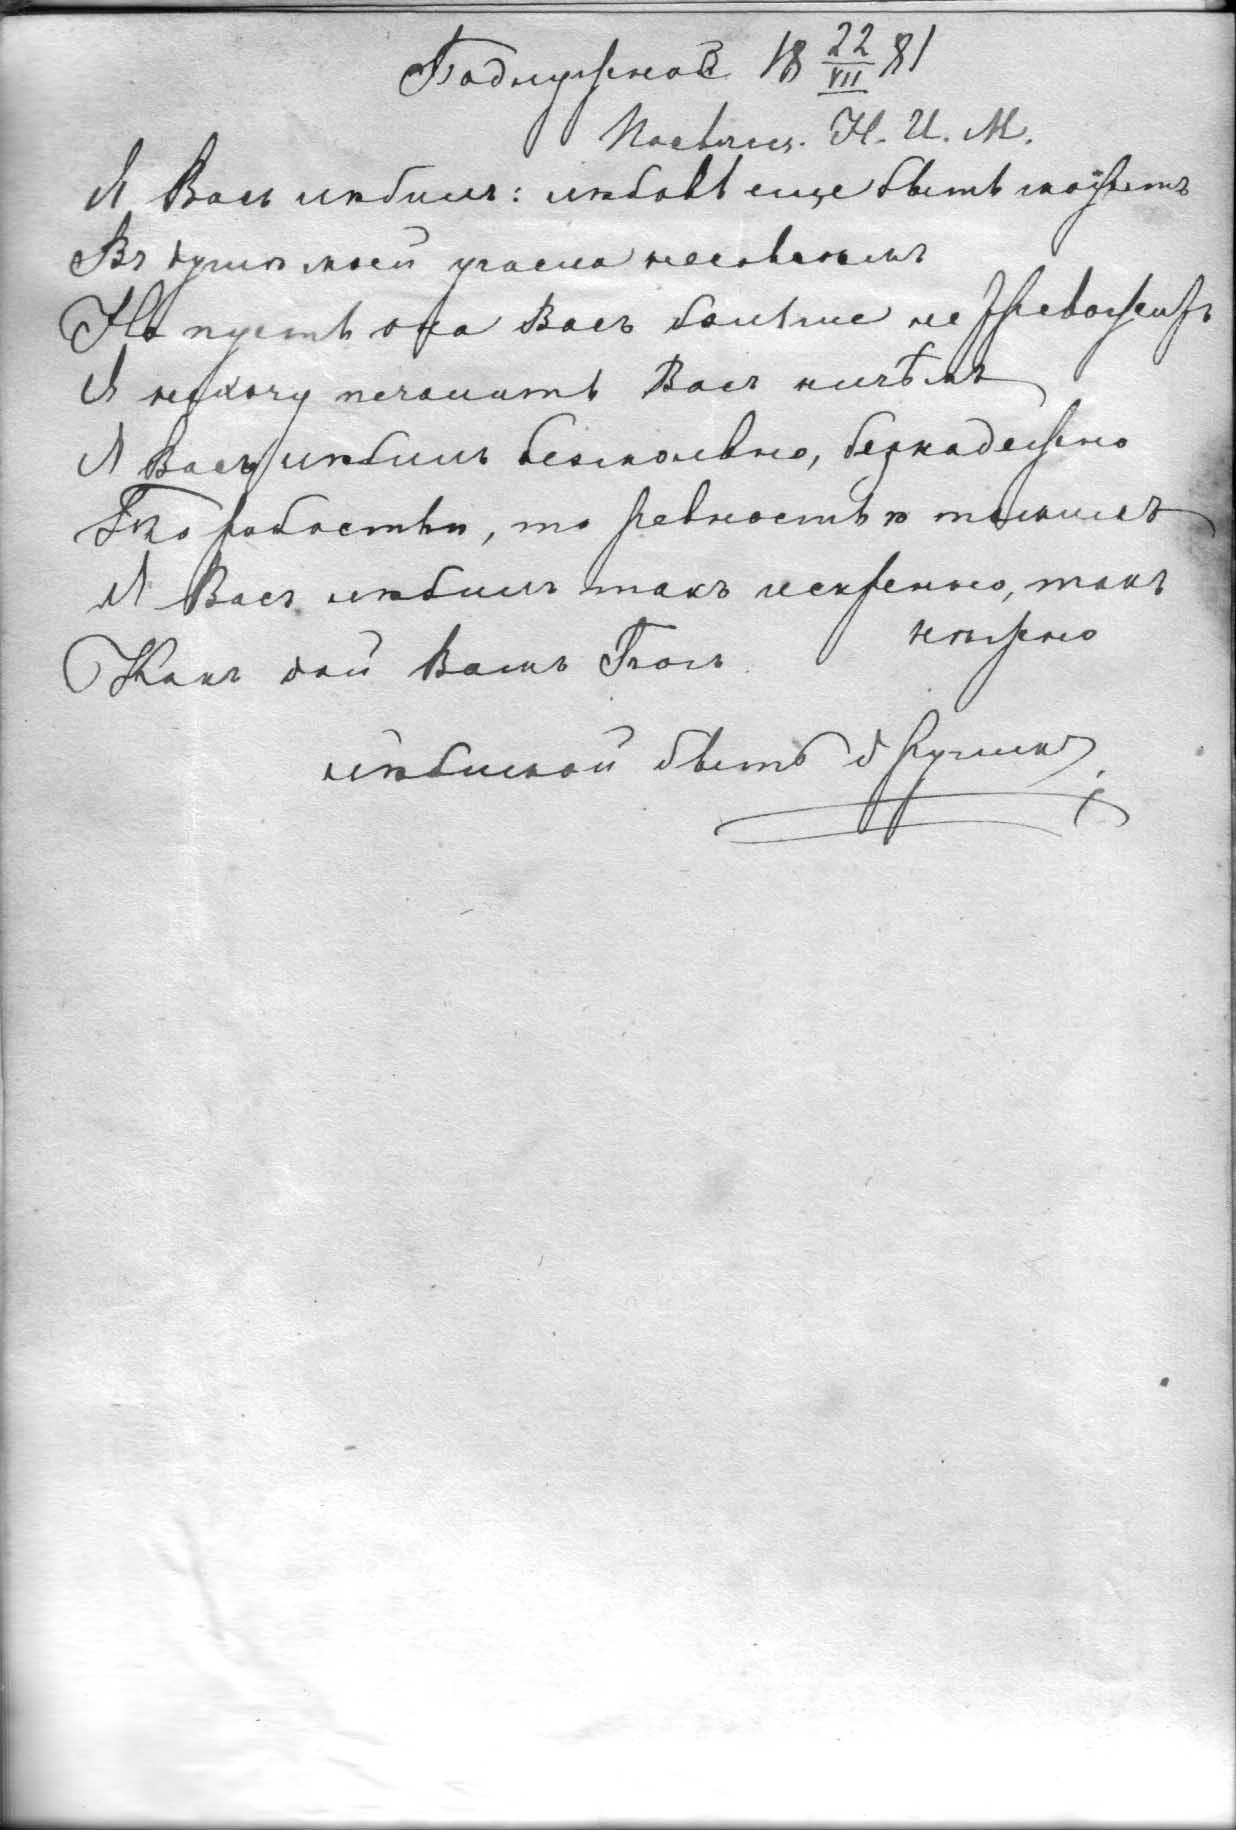 18 22/VII 81
Посвящ. Н. И. М.
Я Васъ любилъ: любовь еще быть можетъ
Въ душѣ моей угасла несовсѣмъ
Но пусть она Васъ больше не тревожитъ
Я не хочу печалить Васъ ничѣмъ
Я Васъ любилъ безмолвно, безнадежно
То робостью, то ревностью томимъ
Я Васъ любилъ такъ искренно, такъ
нѣжно
Какъ дай Вамъ Богъ
любимой быть другимъ